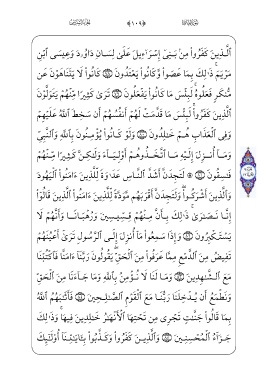 ﴿١٠٩﴾
ٱلَّذِينَ كَفَرُوا۟ مِنۢ بَنِىٓ إِسْرَٰٓءِيلَ عَلَىٰ لِسَانِ دَاوُۥدَ وَعِيسَى ٱبْنِ
مَرْيَمَ ذَٰلِكَ بِمَا عَصَوا۟ وَّكَانُوا۟ يَعْتَدُونَ كَانُوا۟ لَا يَتَنَاهَوْنَ عَن
مُّنكَرٍ فَعَلُوهُ لَبِئْسَ مَا كَانُوا۟ يَفْعَلُونَ تَرَىٰ كَثِيرًا مِّنْهُمْ يَتَوَلَّوْنَ
ٱلَّذِينَ كَفَرُوا۟ لَبِئْسَ مَا قَدَّمَتْ لَهُمْ أَنفُسُهُمْ أَن سَخِطَ ٱللَّهُ عَلَيْهِمْ
وَفِى ٱلْعَذَابِ هُمْ خَٰلِدُونَ وَلَوْ كَانُوا۟ يُؤْمِنُونَ بِٱللَّهِ وَٱلنَّبِىِّ
وَمَآ أُنزِلَ إِلَيْهِ مَا ٱتَّخَذُوهُمْ أَوْلِيَآءَ وَلَٰكِنَّ كَثِيرًا مِّنْهُمْ
فَٰسِقُونَ ۞ لَتَجِدَنَّ أَشَدَّ ٱلنَّاسِ عَدَٰوَةً لِّلَّذِينَ ءَامَنُوا۟ ٱلْيَهُودَ
وَٱلَّذِينَ أَشْرَكُوا۟ وَلَتَجِدَنَّ أَقْرَبَهُم مَّوَدَّةً لِّلَّذِينَ ءَامَنُوا۟ ٱلَّذِينَ قَالُوٓا۟
إِنَّا نَصَٰرَىٰ ذَٰلِكَ بِأَنَّ مِنْهُمْ قِسِّيسِينَ وَرُهْبَانًا وَأَنَّهُمْ لَا
يَسْتَكْبِرُونَ وَإِذَا سَمِعُوا۟ مَآ أُنزِلَ إِلَى ٱلرَّسُولِ تَرَىٰٓ أَعْيُنَهُمْ
تَفِيضُ مِنَ ٱلدَّمْعِ مِمَّا عَرَفُوا۟ مِنَ ٱلْحَقِّ يَقُولُونَ رَبَّنَآ ءَامَنَّا فَٱكْتُبْنَا
مَعَ ٱلشَّٰهِدِينَ وَمَا لَنَا لَا نُؤْمِنُ بِٱللَّهِ وَمَا جَآءَنَا مِنَ ٱلْحَقِّ
وَنَطْمَعُ أَن يُدْخِلَنَا رَبُّنَا مَعَ ٱلْقَوْمِ ٱلصَّٰلِحِينَ فَأَثَٰبَهُمُ ٱللَّهُ
بِمَا قَالُوا۟ جَنَّٰتٍ تَجْرِى مِن تَحْتِهَا ٱلْأَنْهَٰرُ خَٰلِدِينَ فِيهَا وَذَٰلِكَ
جَزَآءُ ٱلْمُحْسِنِينَ وَٱلَّذِينَ كَفَرُوا۟ وَكَذَّبُوا۟ بِـَٔايَٰتِنَآ أُو۟لَٰٓئِكَ